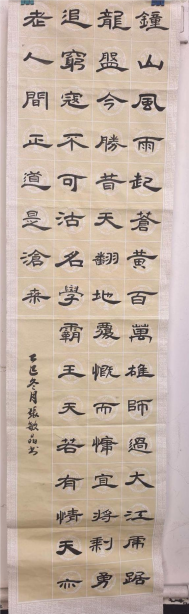 鍾山風雨起蒼黃百萬雄師過大江虎踞
龍盤今勝昔天翻地覆慨而慷宜將剩勇
追窮寇不可沽名學霸王天若有情天亦
老人間正道是滄桒
乙巳冬月張敏